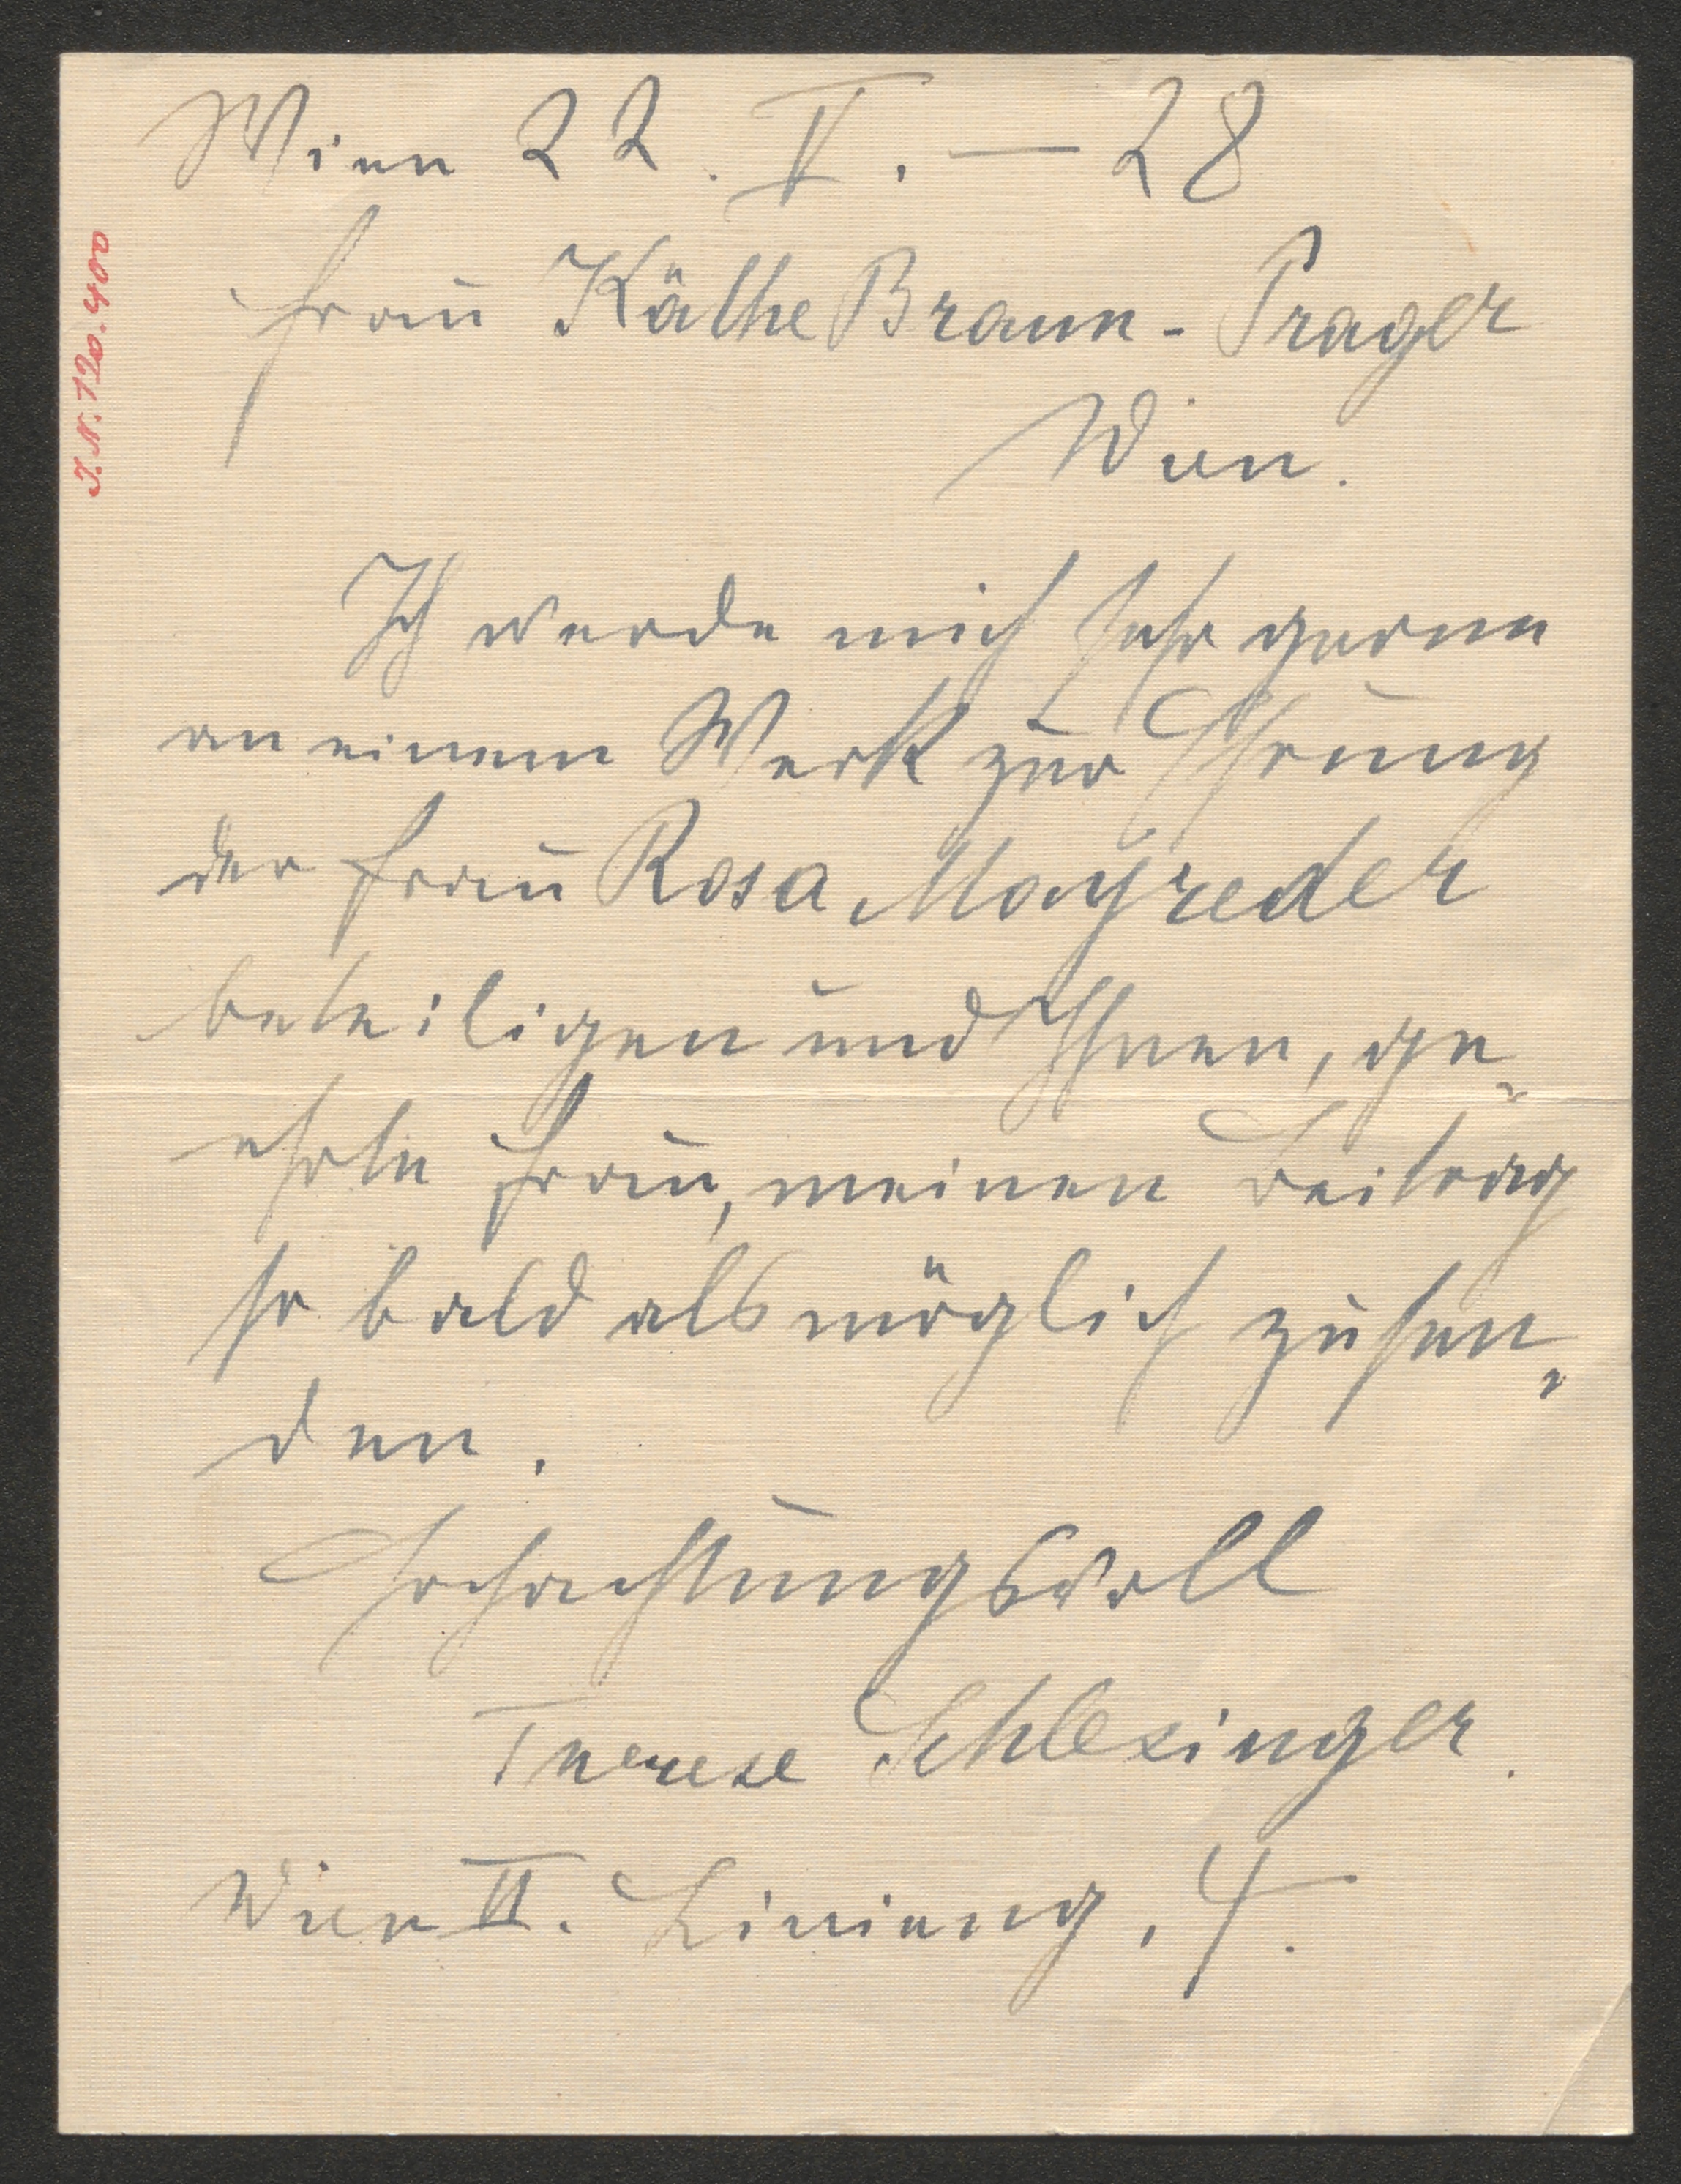 Wien 22. V. — 28
Frau Käthe Braun-Prager
Wien.
Ich werde mich sehr gerne
an einem Werk zur Ehrung
der Frau Rosa Mayreder
beteiligen und Ihnen, ge-
ehrte Frau, meinen Beitrag
so bald als möglich zusen-
den.
Hochachtungsvoll
Therese Schlesinger.
Wien VI. Linieng. 4.
J.N. 120.400